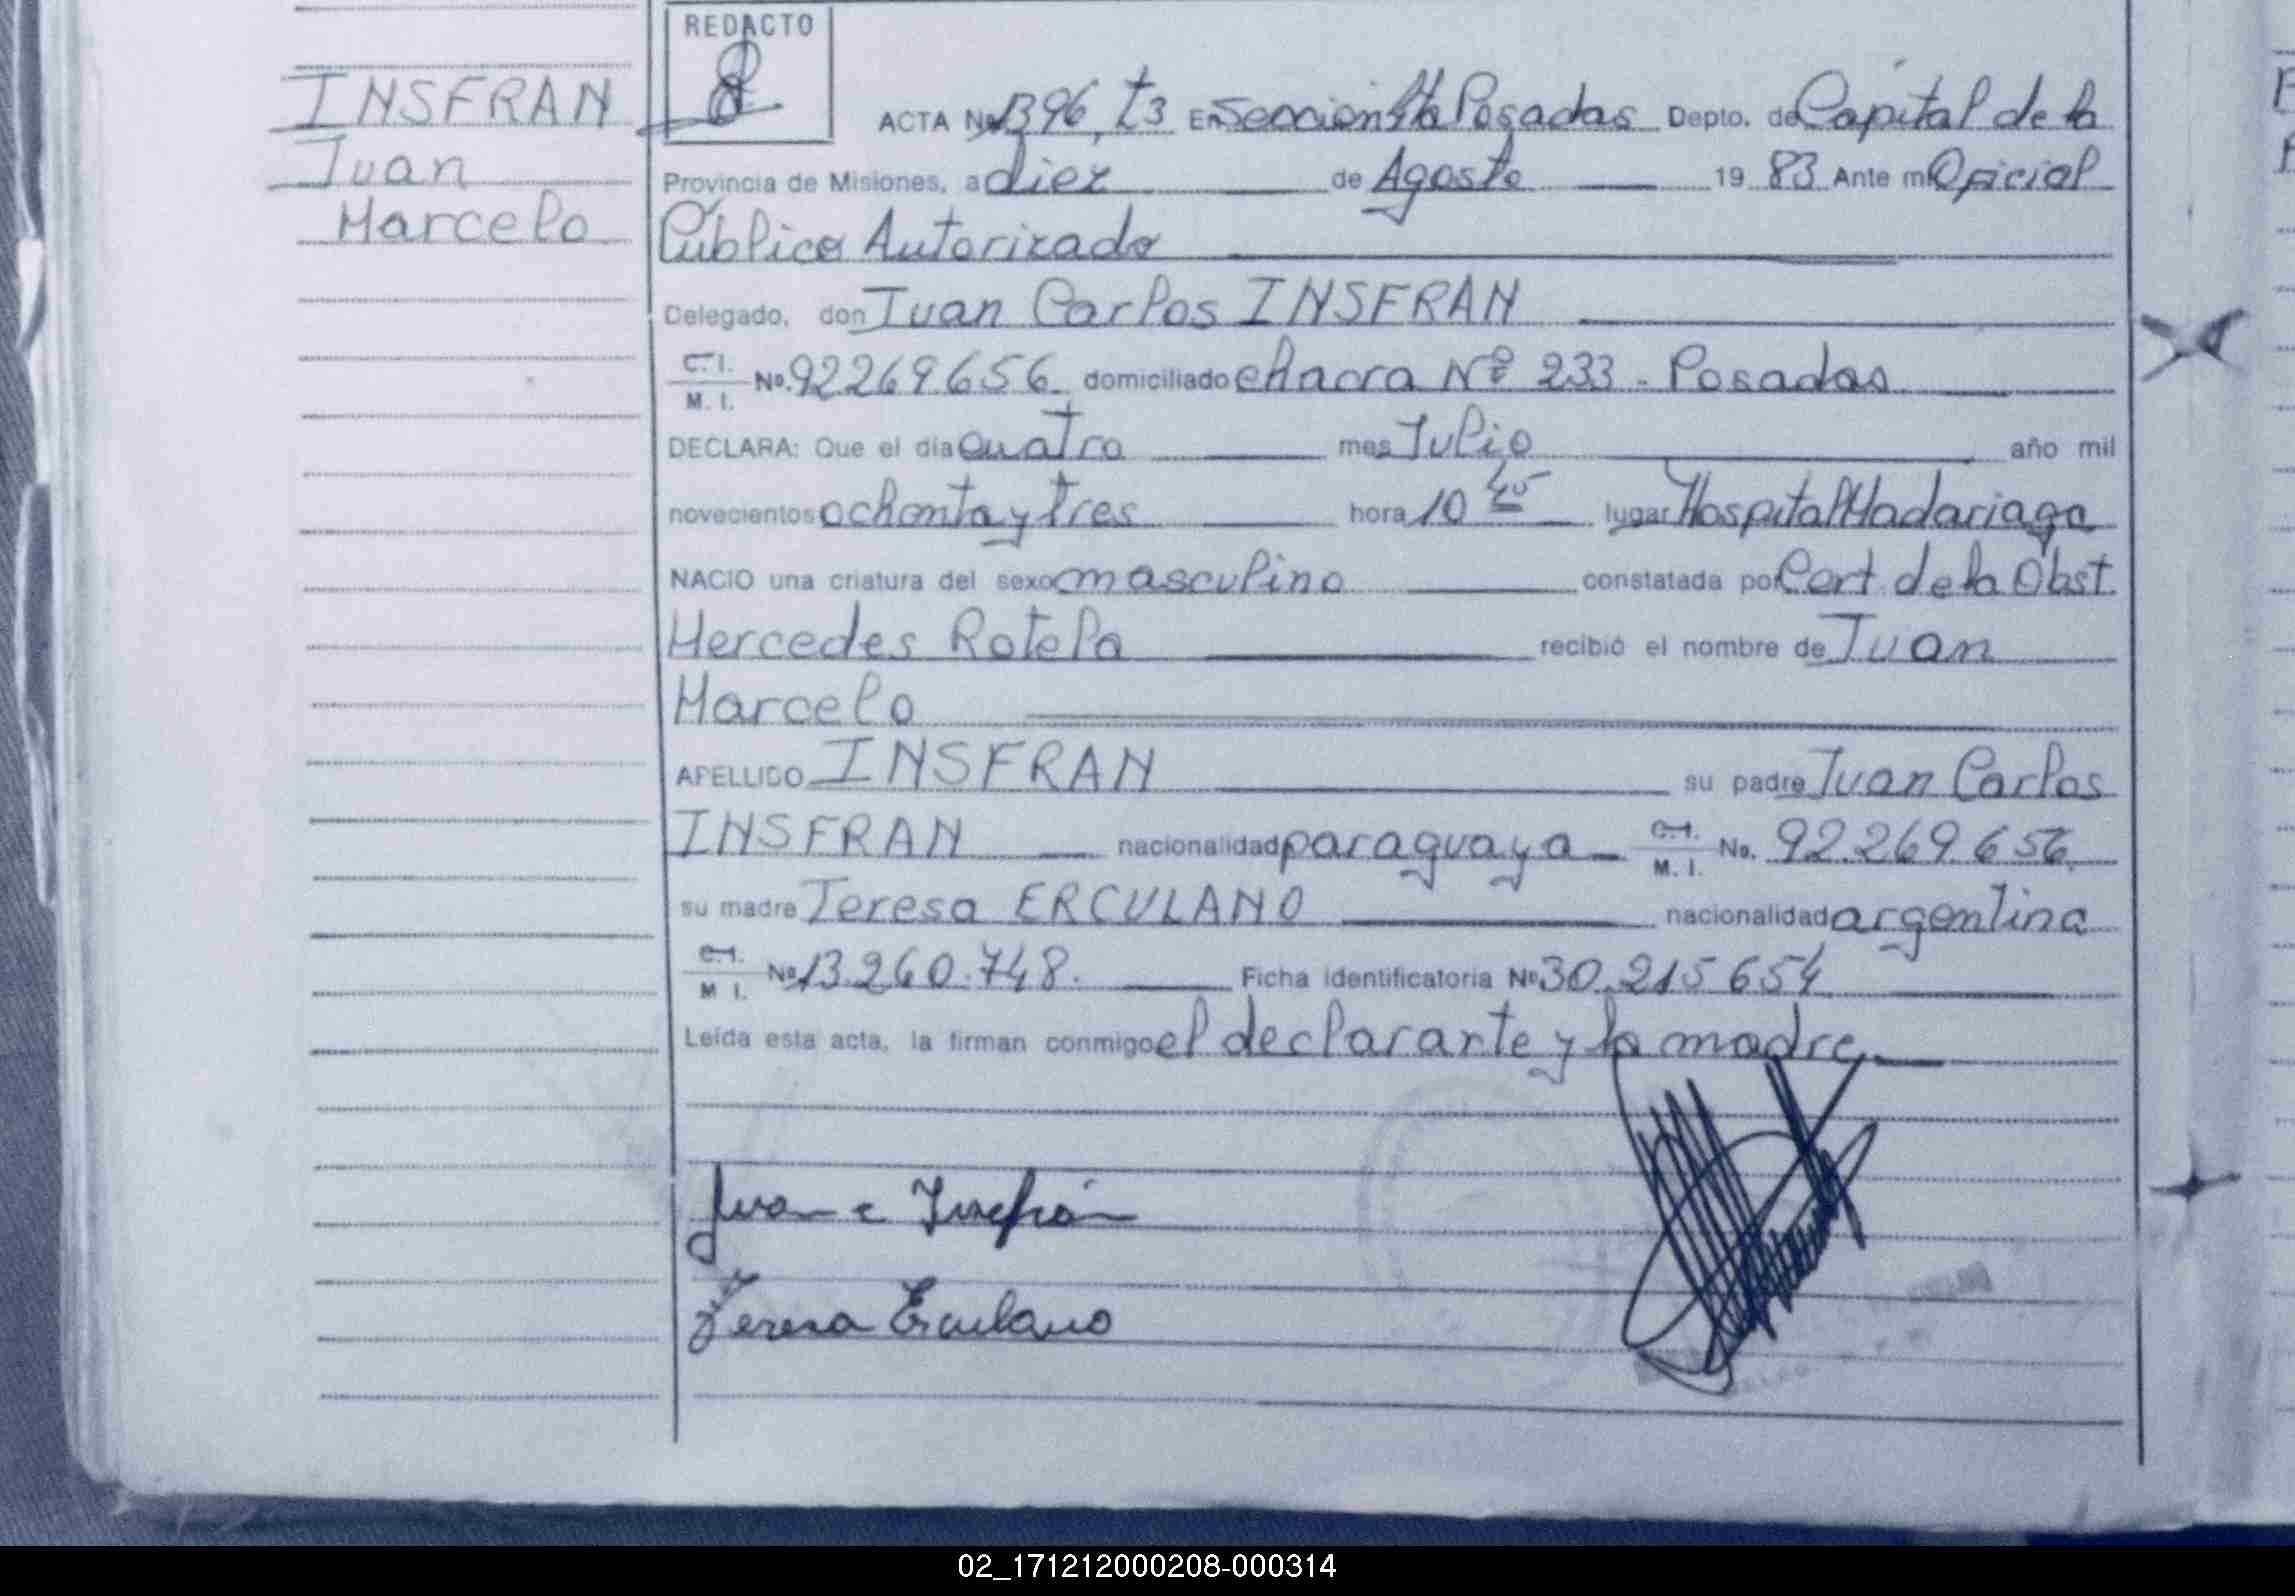 REDACTO
INSFRAN
Juan
Marcelo
ACTA No 1396, t3 En Seccion 4ta Posadas Depto. de Capital de la
Provincia de Misiones, a diez de Agosto 19 83 Ante mi Oficial
Público Autorizado
Delegado, don Juan Carlos INSFRAN
C. I.
M. I. No. 92269.656 domiciliado chacra Nº 233 - Posadas
DECLARA: Que el día cuatro mes Julio año mil
novecientos ochenta y tres hora 10 45 lugar Hospital Madariaga
NACIO una criatura del sexo masculino constatada por Cert. de la Obst.
Mercedes Rotela recibió el nombre de Juan
Marcelo
APELLIDO INSFRAN su padre Juan Carlos
INSFRAN nacionalidad paraguaya C. I. M. I. No. 92.269.656.
su madre Teresa ERCULANO nacionalidad argentina
C. I. M I. No 13.260.748. Ficha identificatoria No 30.215.654
Leída esta acta, la firman conmigo el declarante y la madre
Juan C Insfrán
Teresa Erculano
02_171212000208-000314